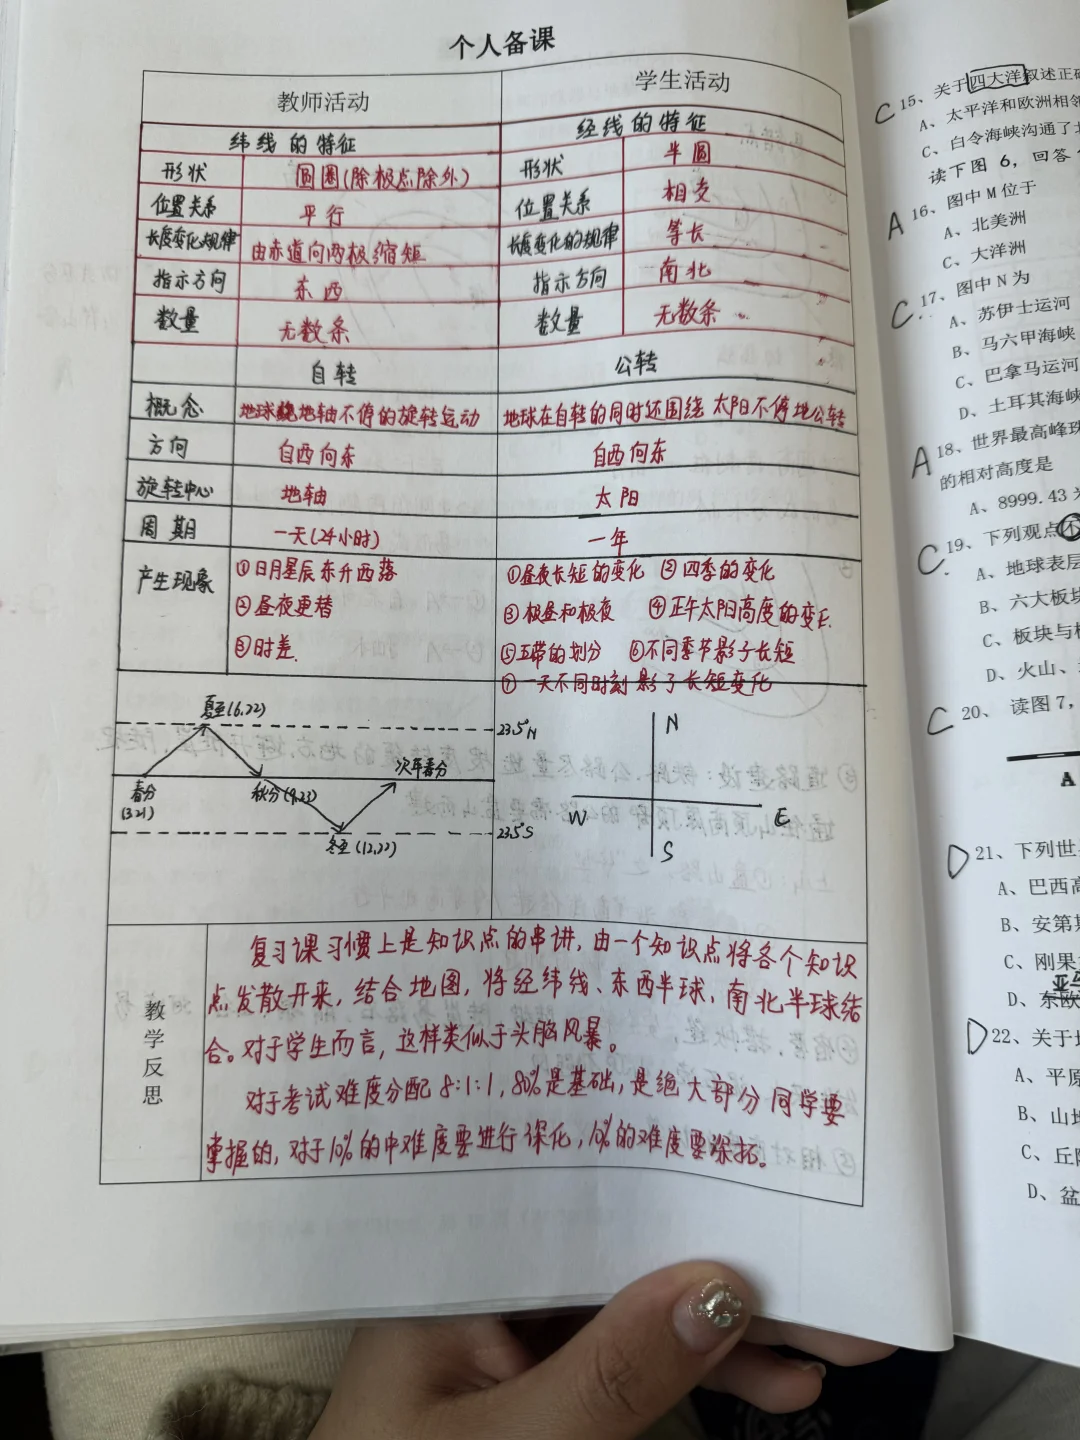 个人备课
教师活动 学生活动
纬线的特征 经线的特征
形状 圆圈(除极点除外) 形状 半圆
位置关系 平行 位置关系 相交
长度变化规律 由赤道向两极缩短 长度变化的规律 等长
指示方向 东西 指示方向 南北
数量 无数条 数量 无数条
自转 公转
概念 地球绕地轴不停的旋转运动 地球在自转的同时还围绕太阳不停地公转
方向 自西向东 自西向东
旋转中心 地轴 太阳
周期 一天(24小时) 一年
产生现象 ①日月星辰东升西落 ①昼夜长短的变化 ②四季的变化
②昼夜更替 ③极昼和极夜 ④正午太阳高度的变化
③时差 ⑤五带的划分 ⑥不同季节影子长短
⑦一天不同时刻影子长短变化
夏至(6,22) 23.5°N N
次年春分
春分 秋分(9,23) W E
(3.21)
冬至(12,22) 23.5°S S
教学反思
复习课习惯上是知识点的串讲,由一个知识点将各个知识
点发散开来,结合地图,将经纬线、东西半球,南北半球结
合。对于学生而言,这样类似于头脑风暴。
对于考试难度分配8:1:1,80%是基础,是绝大部分同学要
掌握的,对于10%的中难度要进行深化,10%的难度要深拓。
C 15、关于四大洋叙述正确
A、太平洋和欧洲相邻
C、白令海峡沟通了北
读下图 6,回答
A 16、图中 M 位于
A、北美洲
C、大洋洲
C 17、图中 N 为
A、苏伊士运河
B、马六甲海峡
C、巴拿马运河
D、土耳其海峡
A 18、世界最高峰珠
的相对高度是
A、8999.43
C 19、下列观点不
A、地球表层
B、六大板块
C、板块与板
D、火山、
C 20、读图 7,
A
D 21、下列世
A、巴西高
B、安第斯
C、刚果
D、东欧
D 22、关于地
A、平原
B、山地
C、丘陵
D、盆